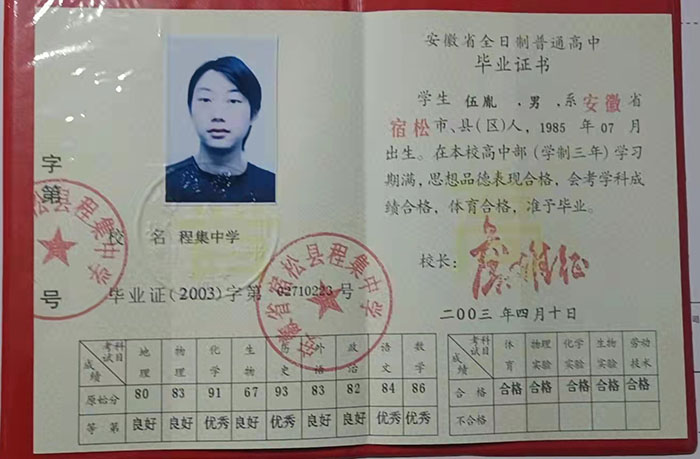 字第
号
校 名 程集中学
毕业证(2003)字第 02710223 号
安徽省宿松县程集中学
考试科目 地理 物理 化学 生物 历史 外语 政治 语文 数学
成绩
原始分 80 83 91 67 93 83 82 84 86
等 第 良好 良好 优秀 良好 优秀 良好 良好 优秀 优秀
安徽省全日制普通高中
毕业证书
学生 伍胤 ,男,系 安徽 省
宿松 市、县(区)人, 1985 年 07 月
出生。在本校高中部(学制三年)学习
期满,思想品德表现合格,会考学科成
绩合格,体育合格,准予毕业。
校长:
二00三 年四月十日
考查科目 体育 物理实验 化学实验 生物实验 劳动技术
成绩
合 格 合格 合格 合格 合格 合格
不合格